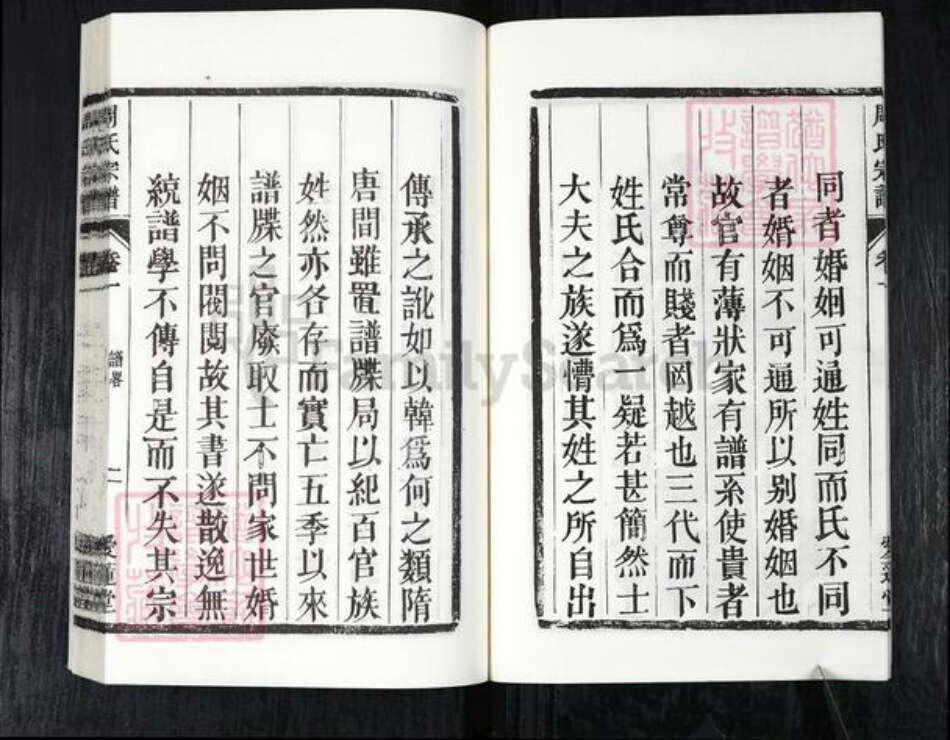 同者婚姻可通姓同而氏不同
者婚姻不可通所以别婚姻也
故官有薄狀家有譜系使貴者
常尊而賤者罔越也三代而下
姓氏合而爲一疑若甚簡然士
大夫之族遂懵其姓之所自出
傳承之訛如以韓爲何之類隋
唐間雖置譜牒局以紀百官族
姓然亦各存而實亡五季以來
譜牒之官廢取士不問家世婚
姻不問閥閱故其書遂散逸無
統譜學不傳自是而不失其宗
周氏宗譜 卷一 譜畧 二 愛蓮堂
FamilySearch